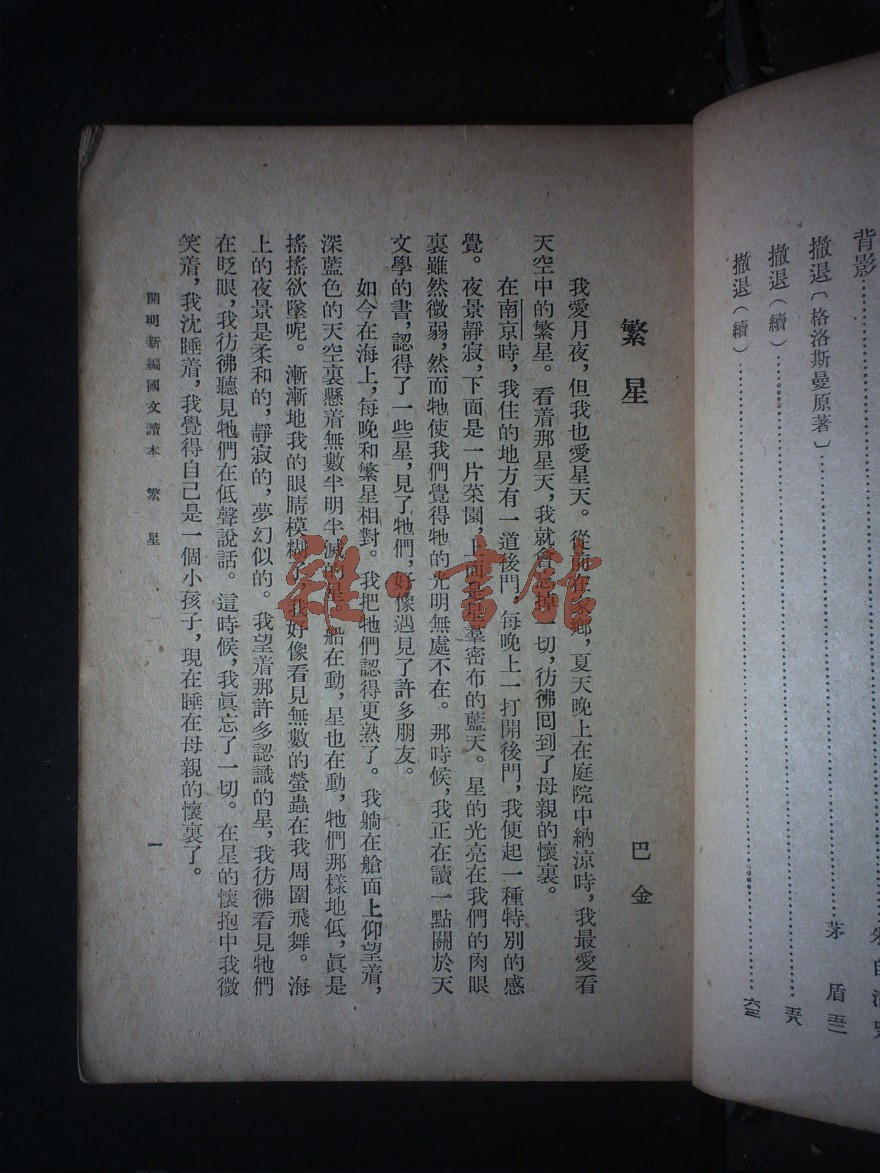 背影
撤退〔格洛斯曼原著〕 茅盾 五二
撤退（續） 五八
撤退（續） 六三
繁星 巴金
我愛月夜，但我也愛星天。從前在家鄉，夏天晚上在庭院中納涼時，我最愛看
天空中的繁星。看着那星天，我就會忘掉一切，彷彿囘到了母親的懷裏。
在南京時，我住的地方有一道後門，每晚上一打開後門，我便起一種特別的感
覺。夜景靜寂，下面是一片菜園，上面是星羣密布的藍天。星的光亮在我們的肉眼
裏雖然微弱，然而牠使我們覺得牠的光明無處不在。那時候，我正在讀一點關於天
文學的書，認得了一些星，見了牠們，好像遇見了許多朋友。
如今在海上，每晚和繁星相對。我把牠們認得更熟了。我躺在艙面上仰望着，
深藍色的天空裏懸着無數半明半滅的星。船在動，星也在動，牠們那樣地低，眞是
搖搖欲墜呢。漸漸地我的眼睛模糊了，我好像看見無數的螢蟲在我周圍飛舞。海
上的夜景是柔和的，靜寂的，夢幻似的。我望着那許多認識的星，我彷彿看見牠們
在眨眼，我彷彿聽見牠們在低聲說話。這時候，我眞忘了一切。在星的懷抱中我微
笑着，我沈睡着，我覺得自己是一個小孩子，現在睡在母親的懷裏了。
開明新編國文讀本 繁星 一
雜·書館